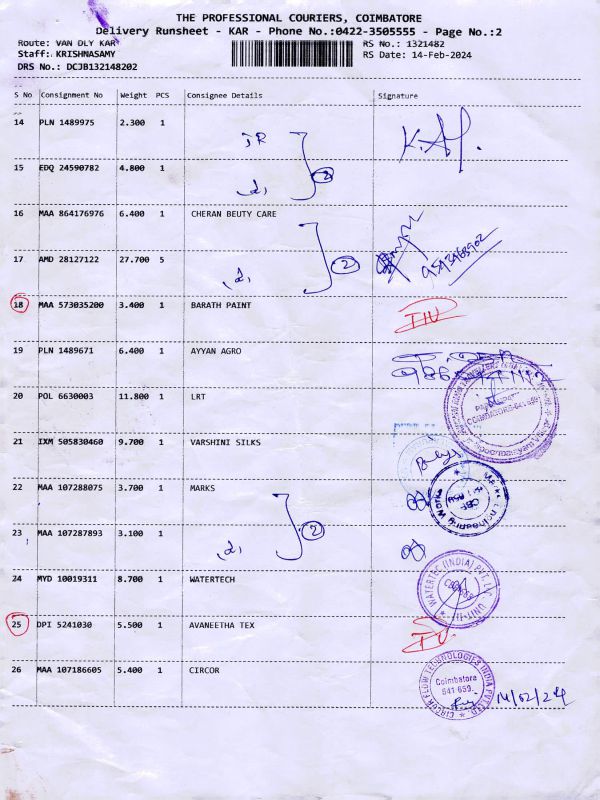 THE PROFESSIONAL COURIERS, COIMBATORE
Delivery Runsheet - KAR - Phone No.:0422-3505555 - Page No.:2
Route: VAN DLY KAR RS No.: 1321482
Staff: KRISHNASAMY RS Date: 14-Feb-2024
DRS No.: DCJB132148202
S No Consignment No Weight PCS Consignee Details Signature
14 PLN 1489975 2.300 1 JR
15 EDQ 24590782 4.800 1 2
16 MAA 864176976 6.400 1 CHERAN BEUTY CARE
17 AMD 28127122 27.700 5 2
18 MAA 573035200 3.400 1 BARATH PAINT
19 PLN 1489671 6.400 1 AYYAN AGRO
20 POL 6630003 11.800 1 LRT
21 IXM 505830460 9.700 1 VARSHINI SILKS
22 MAA 107288075 3.700 1 MARKS
23 MAA 107287893 3.100 1 2
24 MYD 10019311 8.700 1 WATERTECH
WATERTEC (INDIA) PVT. LTD. UNIT-II
25 DPI 5241030 5.500 1 AVANEETHA TEX
26 MAA 107186605 5.400 1 CIRCOR
CIRCOR FLOW TECHNOLOGIES INDIA PVT LTD
Coimbatore
641 659.
14/02/24